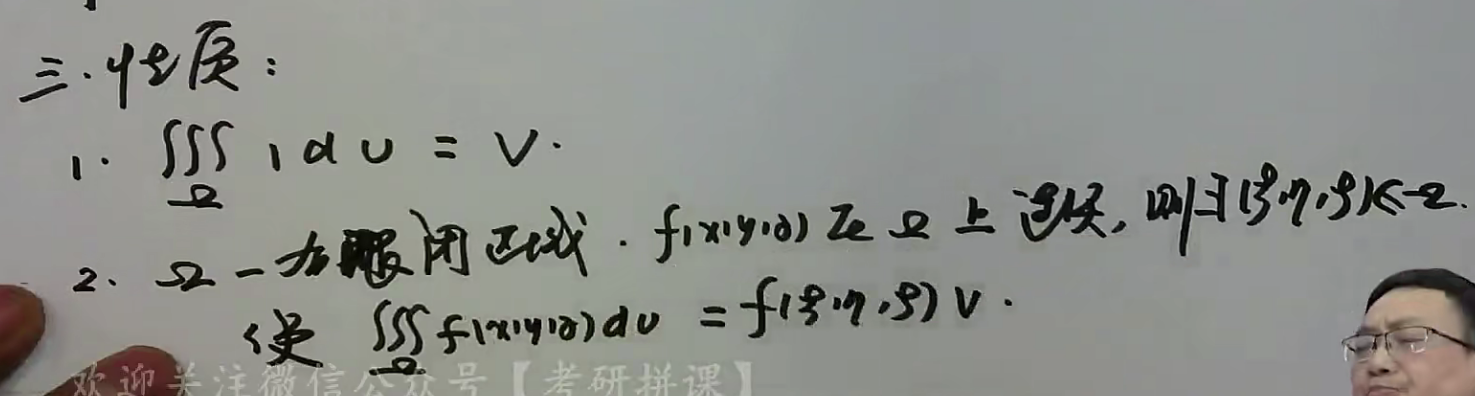 三.性质:
1. ∭_Ω 1 dv = V.
2. Ω—有限闭区域. f(x,y,z)在Ω上连续,则∃(ξ,η,ζ)∈Ω.
使 ∭_Ω f(x,y,z)dv = f(ξ,η,ζ)V.
欢迎关注微信公众号【考研拼课】